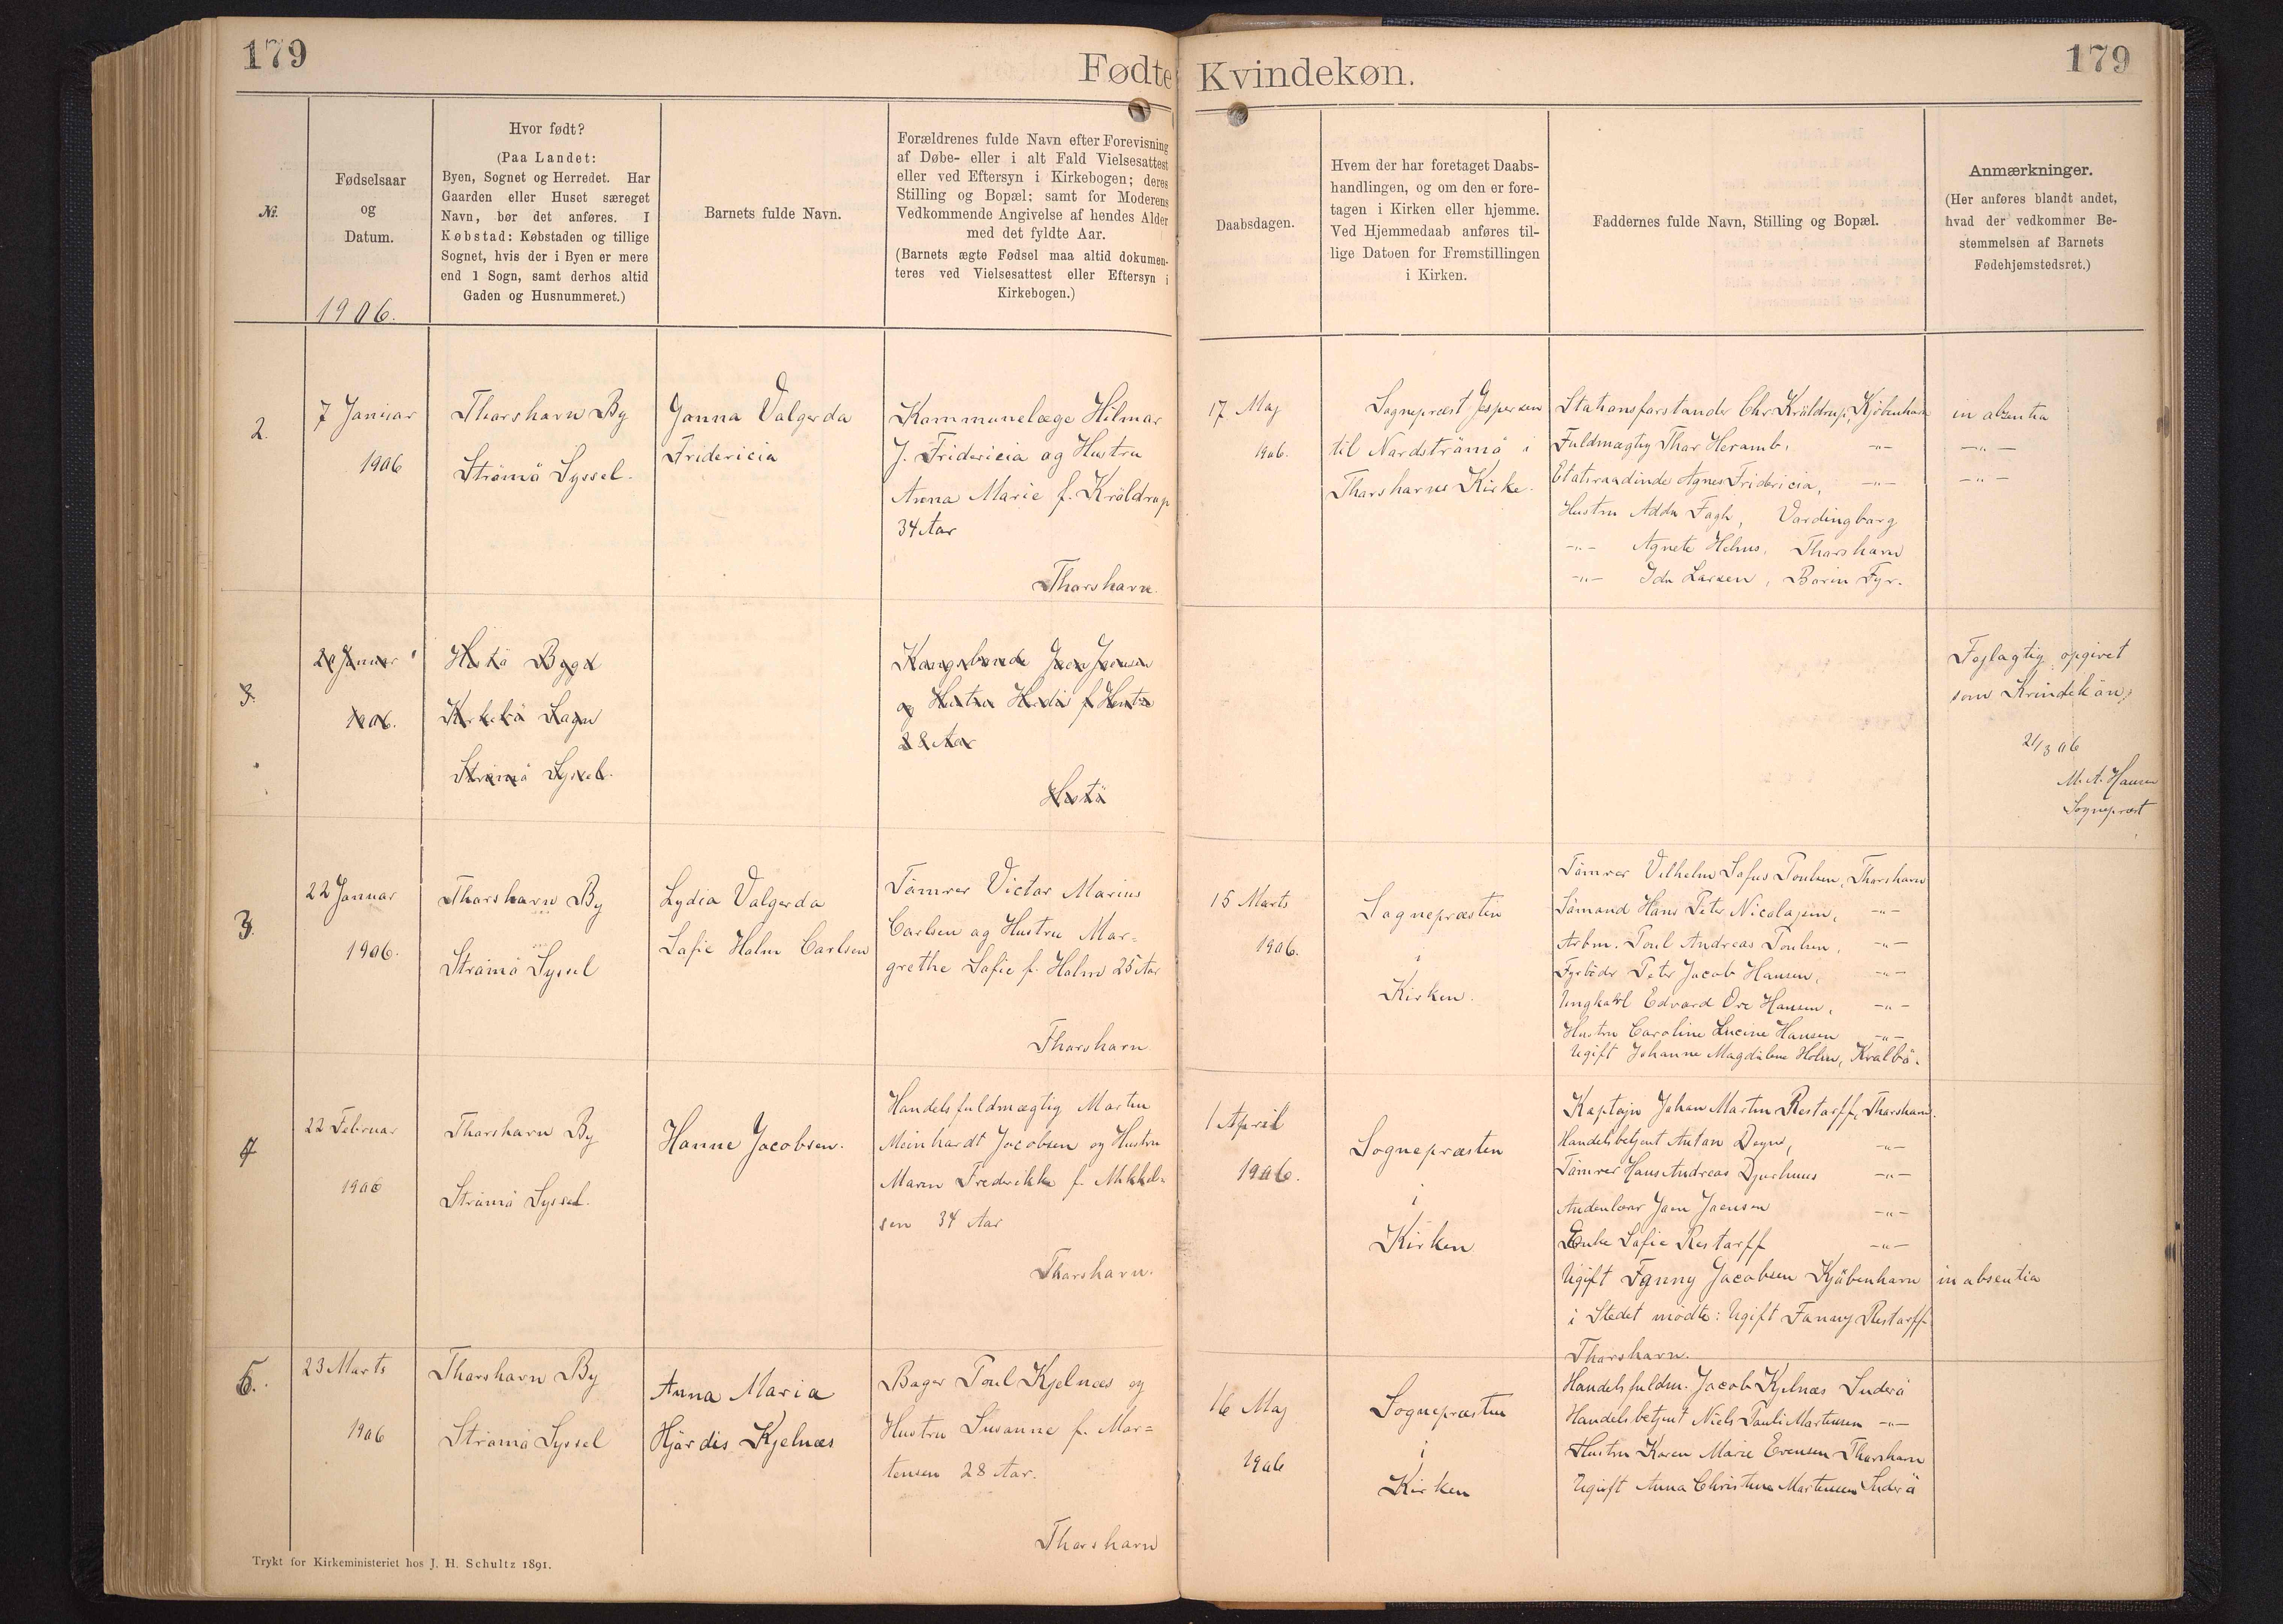 179
Fødte Kvindekøn.
179
Nr.
Fødselsaar
og
Datum.
1906.
Hvor født?
(Paa Landet:
Byen, Sognet og Herredet. Har
Gaarden eller Huset særeget
Navn, bør det anføres. I
Købstad: Købstaden og tillige
Sognet, hvis der i Byen er mere
end 1 Sogn, samt derhos altid
Gaden og Husnummeret.)
Barnets fulde Navn.
Forældrenes fulde Navn efter Forevisning
af Døbe- eller i alt Fald Vielsesattest
eller ved Eftersyn i Kirkebogen; deres
Stilling og Bopæl; samt for Moderens
Vedkommende Angivelse af hendes Alder
med det fyldte Aar.
(Barnets ægte Fødsel maa altid dokumen-
teres ved Vielsesattest eller Eftersyn i
Kirkebogen.)
Daabsdagen.
Hvem der har foretaget Daabs-
handlingen, og om den er fore-
tagen i Kirken eller hjemme.
Ved Hjemmedaab anføres til-
lige Datoen for Fremstillingen
i Kirken.
Faddernes fulde Navn, Stilling og Bopæl.
Anmærkninger.
(Her anføres blandt andet,
hvad der vedkommer Be-
stemmelsen af Barnets
Fødehjemstedsret.)
2.
7 Januar
1906
Thorshavn By
Strömö Syssel.
Janna Valgerda
Fridericia
Kommunelæge Hilmar
J. Fridericia og Hustru
Anna Marie f. Kröldrup
34 Aar
Thorshavn.
17 Maj
1906.
Sognepræst Jespersen
til Nordströmö i
Thorshavns Kirke.
Stationsforstander Chr. Kröldrup, Kjöbenhavn
Fuldmægtig Thor Heramb, -"-
Etatsraadinde Agnes Fridericia, -"-
Hustru Adda Fagh, Vordingborg
-"- Agnete Helms, Thorshavn
-"- Ida Larsen, Borin Fyr.
in absentia
-"-
-"-
3.
20 Januar
1906.
Hestö Bygd
Kirkebö Sogn
Strömö Syssel.
Kongsbonde Joen Joensen
og Hustru f
28 Aar
Hestö
Fejlagtig opgivet
som Kvindekön,
21/3 06
M. A. Hansen
Sognepræst
3.
22 Januar
1906.
Thorshavn By
Strömö Syssel
Lydia Valgerda
Sofie Holm Carlsen
Tömrer Victor Marius
Carlsen og Hustru Mar-
grethe Sofie f. Holm 25 Aar
Thorshavn
15 Marts
1906.
Sognepræsten
i
Kirken.
Tömrer Vilhelm Sofus Poulsen, Thorshavn
Sömand Hans Peter Nicolajsen, -"-
Arbm. Poul Andreas Poulsen, -"-
Fyrböder Peter Jacob Hansen, -"-
Ungkarl Edvard Ove Hansen, -"-
Hustru Caroline Lucine Hansen -"-
Ugift Johanne Magdalene Holm, Kvalbö.
4
22 Februar
1906
Thorshavn By
Strömö Syssel.
Hanne Jacobsen.
Handelsfuldmægtig Martin
Meinhardt Jacobsen og Hustru
Maren Frederikke f. Mikkel-
sen 34 Aar
Thorshavn.
1 April
1906.
Sognepræsten
i
Kirken
Kaptajn Johan Martin Restorff, Thorshavn.
Handelsbetjent Anton Degn, -"-
Tömrer Hans Andreas Djurhuus -"-
Andenlærer Joen Joensen -"-
Enke Sofie Restorff -"-
Ugift Fanny Jacobsen Kjöbenhavn
i Stedet mödte: Ugift Fanny Restorff
Thorshavn.
in absentia
5.
23 Marts
1906
Thorshavn By
Strömö Syssel
Anna Maria
Hjördis Kjelnæs
Bager Poul Kjelnæs og
Hustru Susanne f. Mor-
tensen 28 Aar.
Thorshavn
16 Maj
1906
Sognepræsten
i
Kirken
Handelsfuldm. Jacob Kjelnæs Suderö
Handelsbetjent Niels Pauli Mortensen -"-
Hustru Karen Marie Evensen Thorshavn
Ugift Anna Christina Mortensen Suderö
Trykt for Kirkeministeriet hos J. H. Schultz 1891.